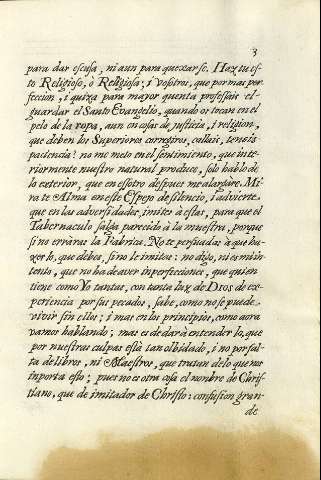 3
para dar escusa, ni aun para quexarse. Haz tu es-
to Religioso, ò Religiosa; i Vosotros, que por mas per-
feccion, i quiza para mayor quenta professais el
guardar el Santo Evangelio, quando os tocan en el
pelo de la ropa, aun en cosas de justicia, i religion,
que deben los Superiores corregiros, callais, teneis
paciencia? no me meto en el sentimiento, que inte-
riormente nuestro natural produce, solo hablo de
lo exterior, que en essotro despues me alargare. Mi-
rate Alma en este Espejo de silencio, i advierte,
que en las adversidades, imites à estas, para que el
Tabernaculo salga parecido à la muestra, porque
si no erraras la Fabrica. No te persuadas à que ha-
zes lo, que debes, si no le imitas: no digo, ni es mi in-
tento, que no ha de aver inperfecciones, que quien
tiene como Yo tantas, con tanta luz de Dios de ex-
periencia por sus pecados, sabe, como no se puede
vivir sin ellos; i mas en los principios, como aora
vamos hablando; mas es de dar à entender lo, que
por nuestras culpas està tan olbidado, i no por fal-
ta de libros, ni Maestros, que tratan de lo que nos
inporta esto; pues no es otra cosa el nonbre de Chris-
tiano, que de imitador de Christo: confusion gran-
de